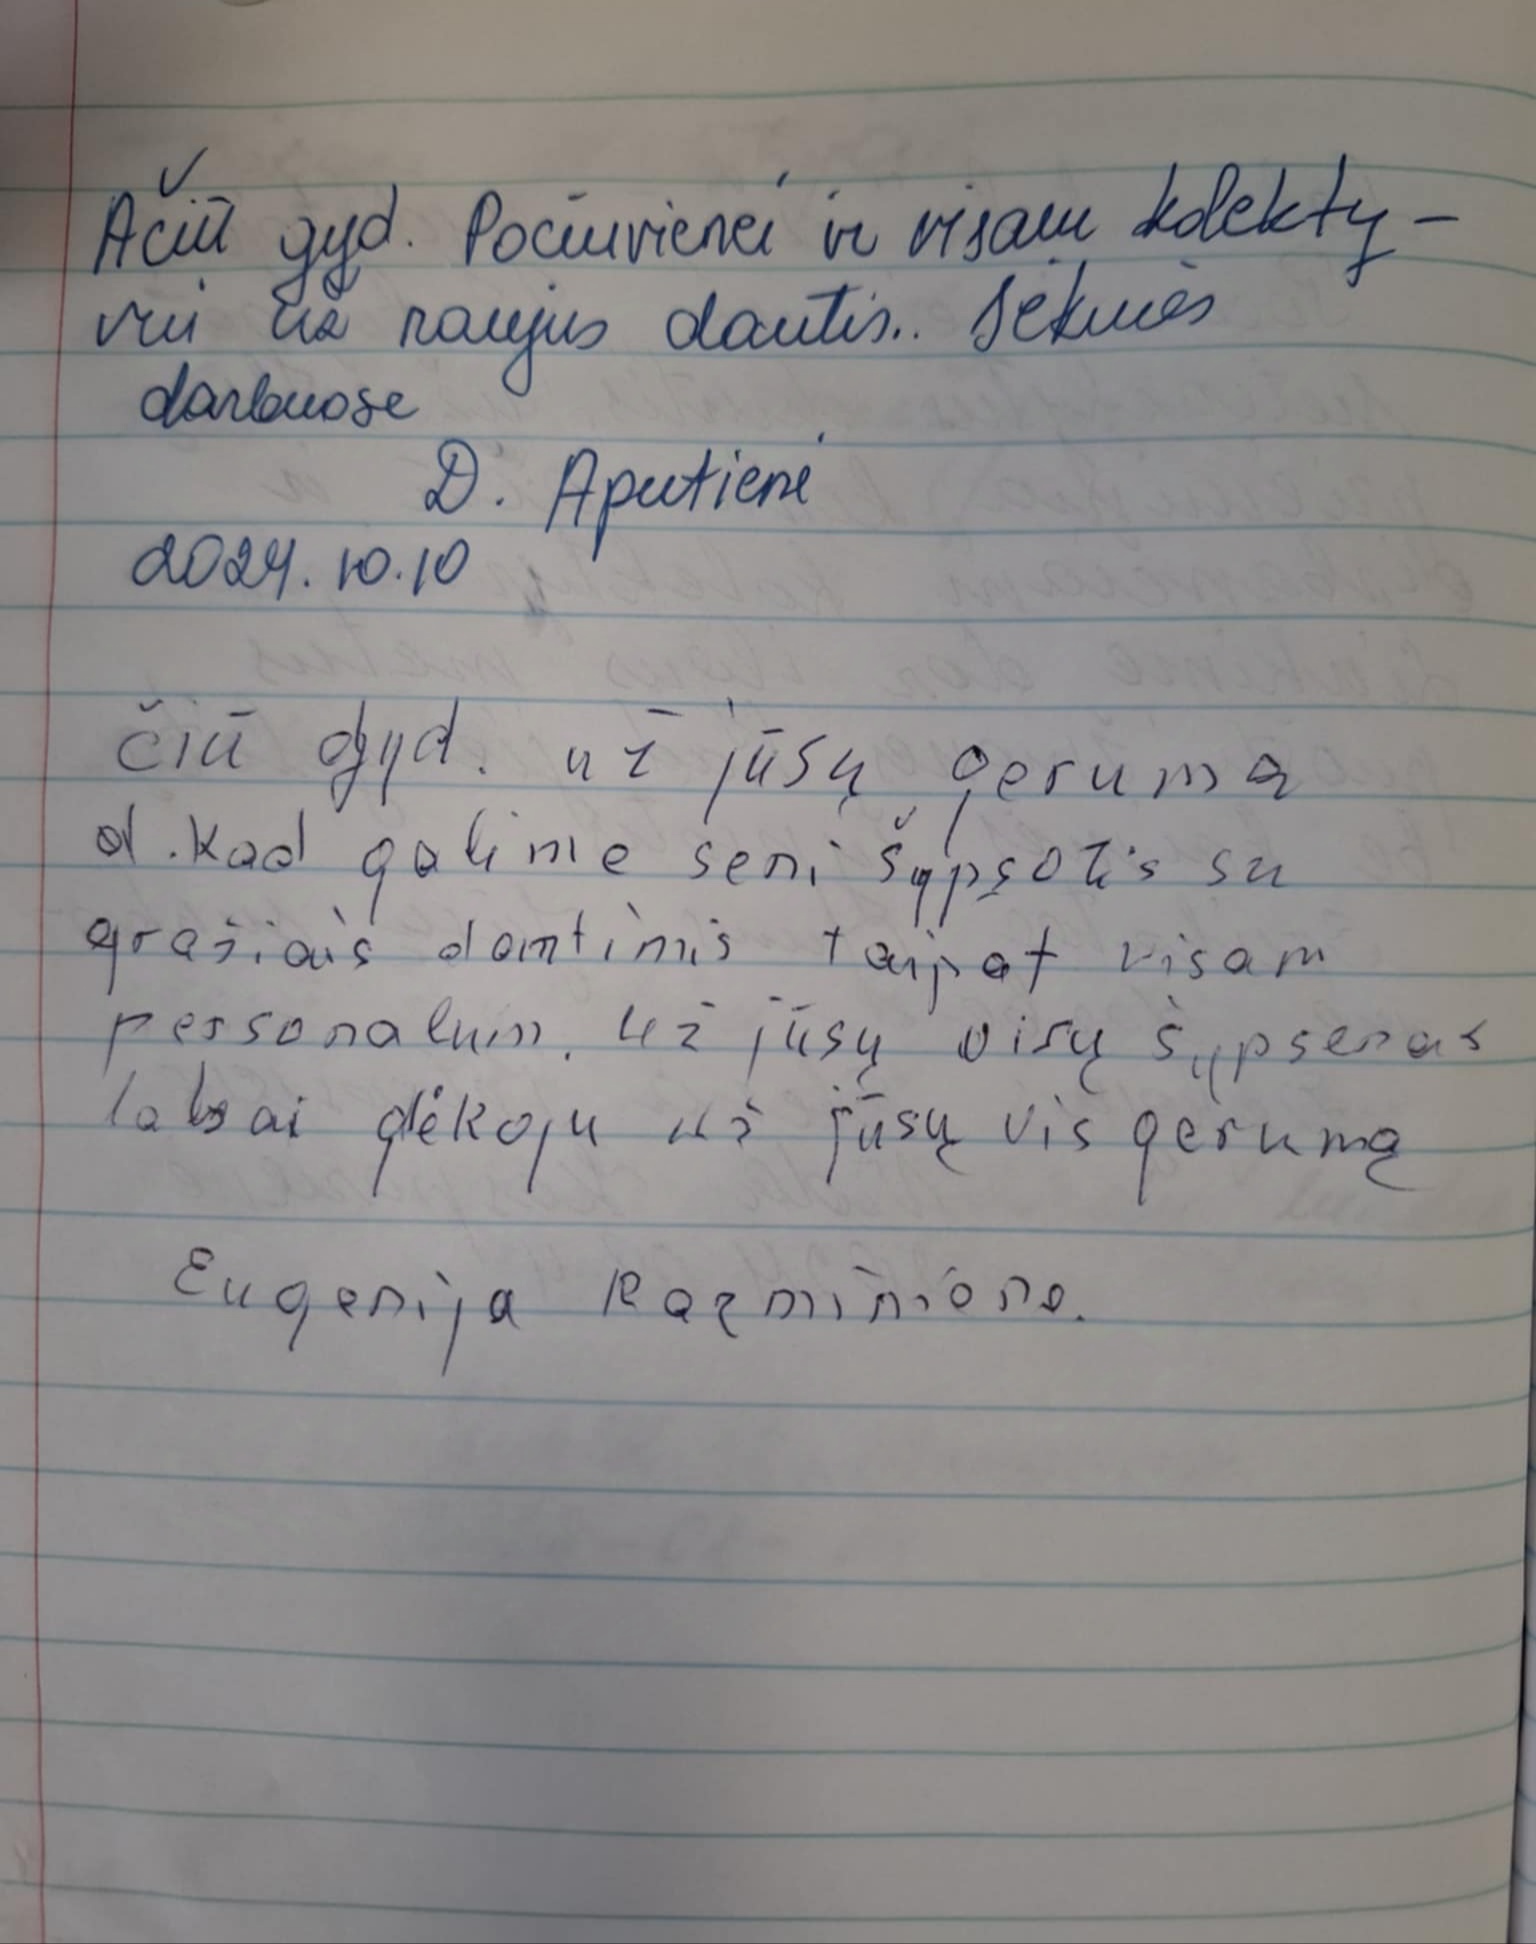 Ačiū gyd. Pociuvienei ir visam kolekty-
vui už naujus dantis.. Sėkmės
darbuose
D. Aputienė
2024.10.10
čiū gyd. už jūsų geruma
d. kad galime seni šypsotis su
gražiais dantimis taipat visam
personalum. už jūsų visų šypsenas
labai dėkoju už jūsų vis gerumą
Eugenija Kazminienė.